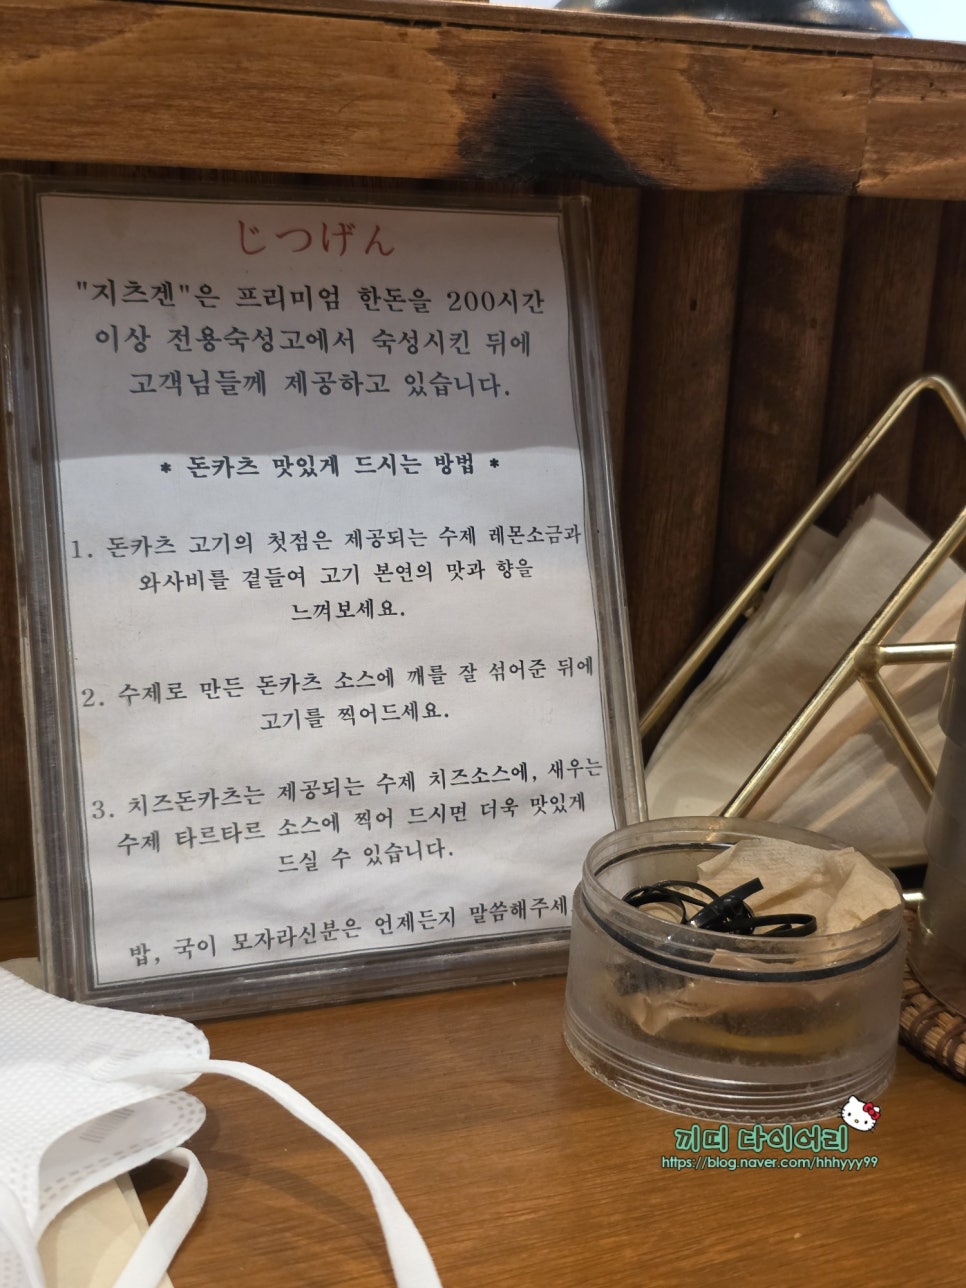 じつげん
"지츠겐"은 프리미엄 한돈을 200시간
이상 전용숙성고에서 숙성시킨 뒤에
고객님들께 제공하고 있습니다.
* 돈카츠 맛있게 드시는 방법 *
1. 돈카츠 고기의 첫점은 제공되는 수제 레몬소금과
와사비를 곁들여 고기 본연의 맛과 향을
느껴보세요.
2. 수제로 만든 돈카츠 소스에 깨를 잘 섞어준 뒤에
고기를 찍어드세요.
3. 치즈돈카츠는 제공되는 수제 치즈소스에, 새우는
수제 타르타르 소스에 찍어 드시면 더욱 맛있게
드실 수 있습니다.
밥, 국이 모자라신분은 언제든지 말씀해주세
끼띠 다이어리
https://blog.naver.com/hhhyyy99